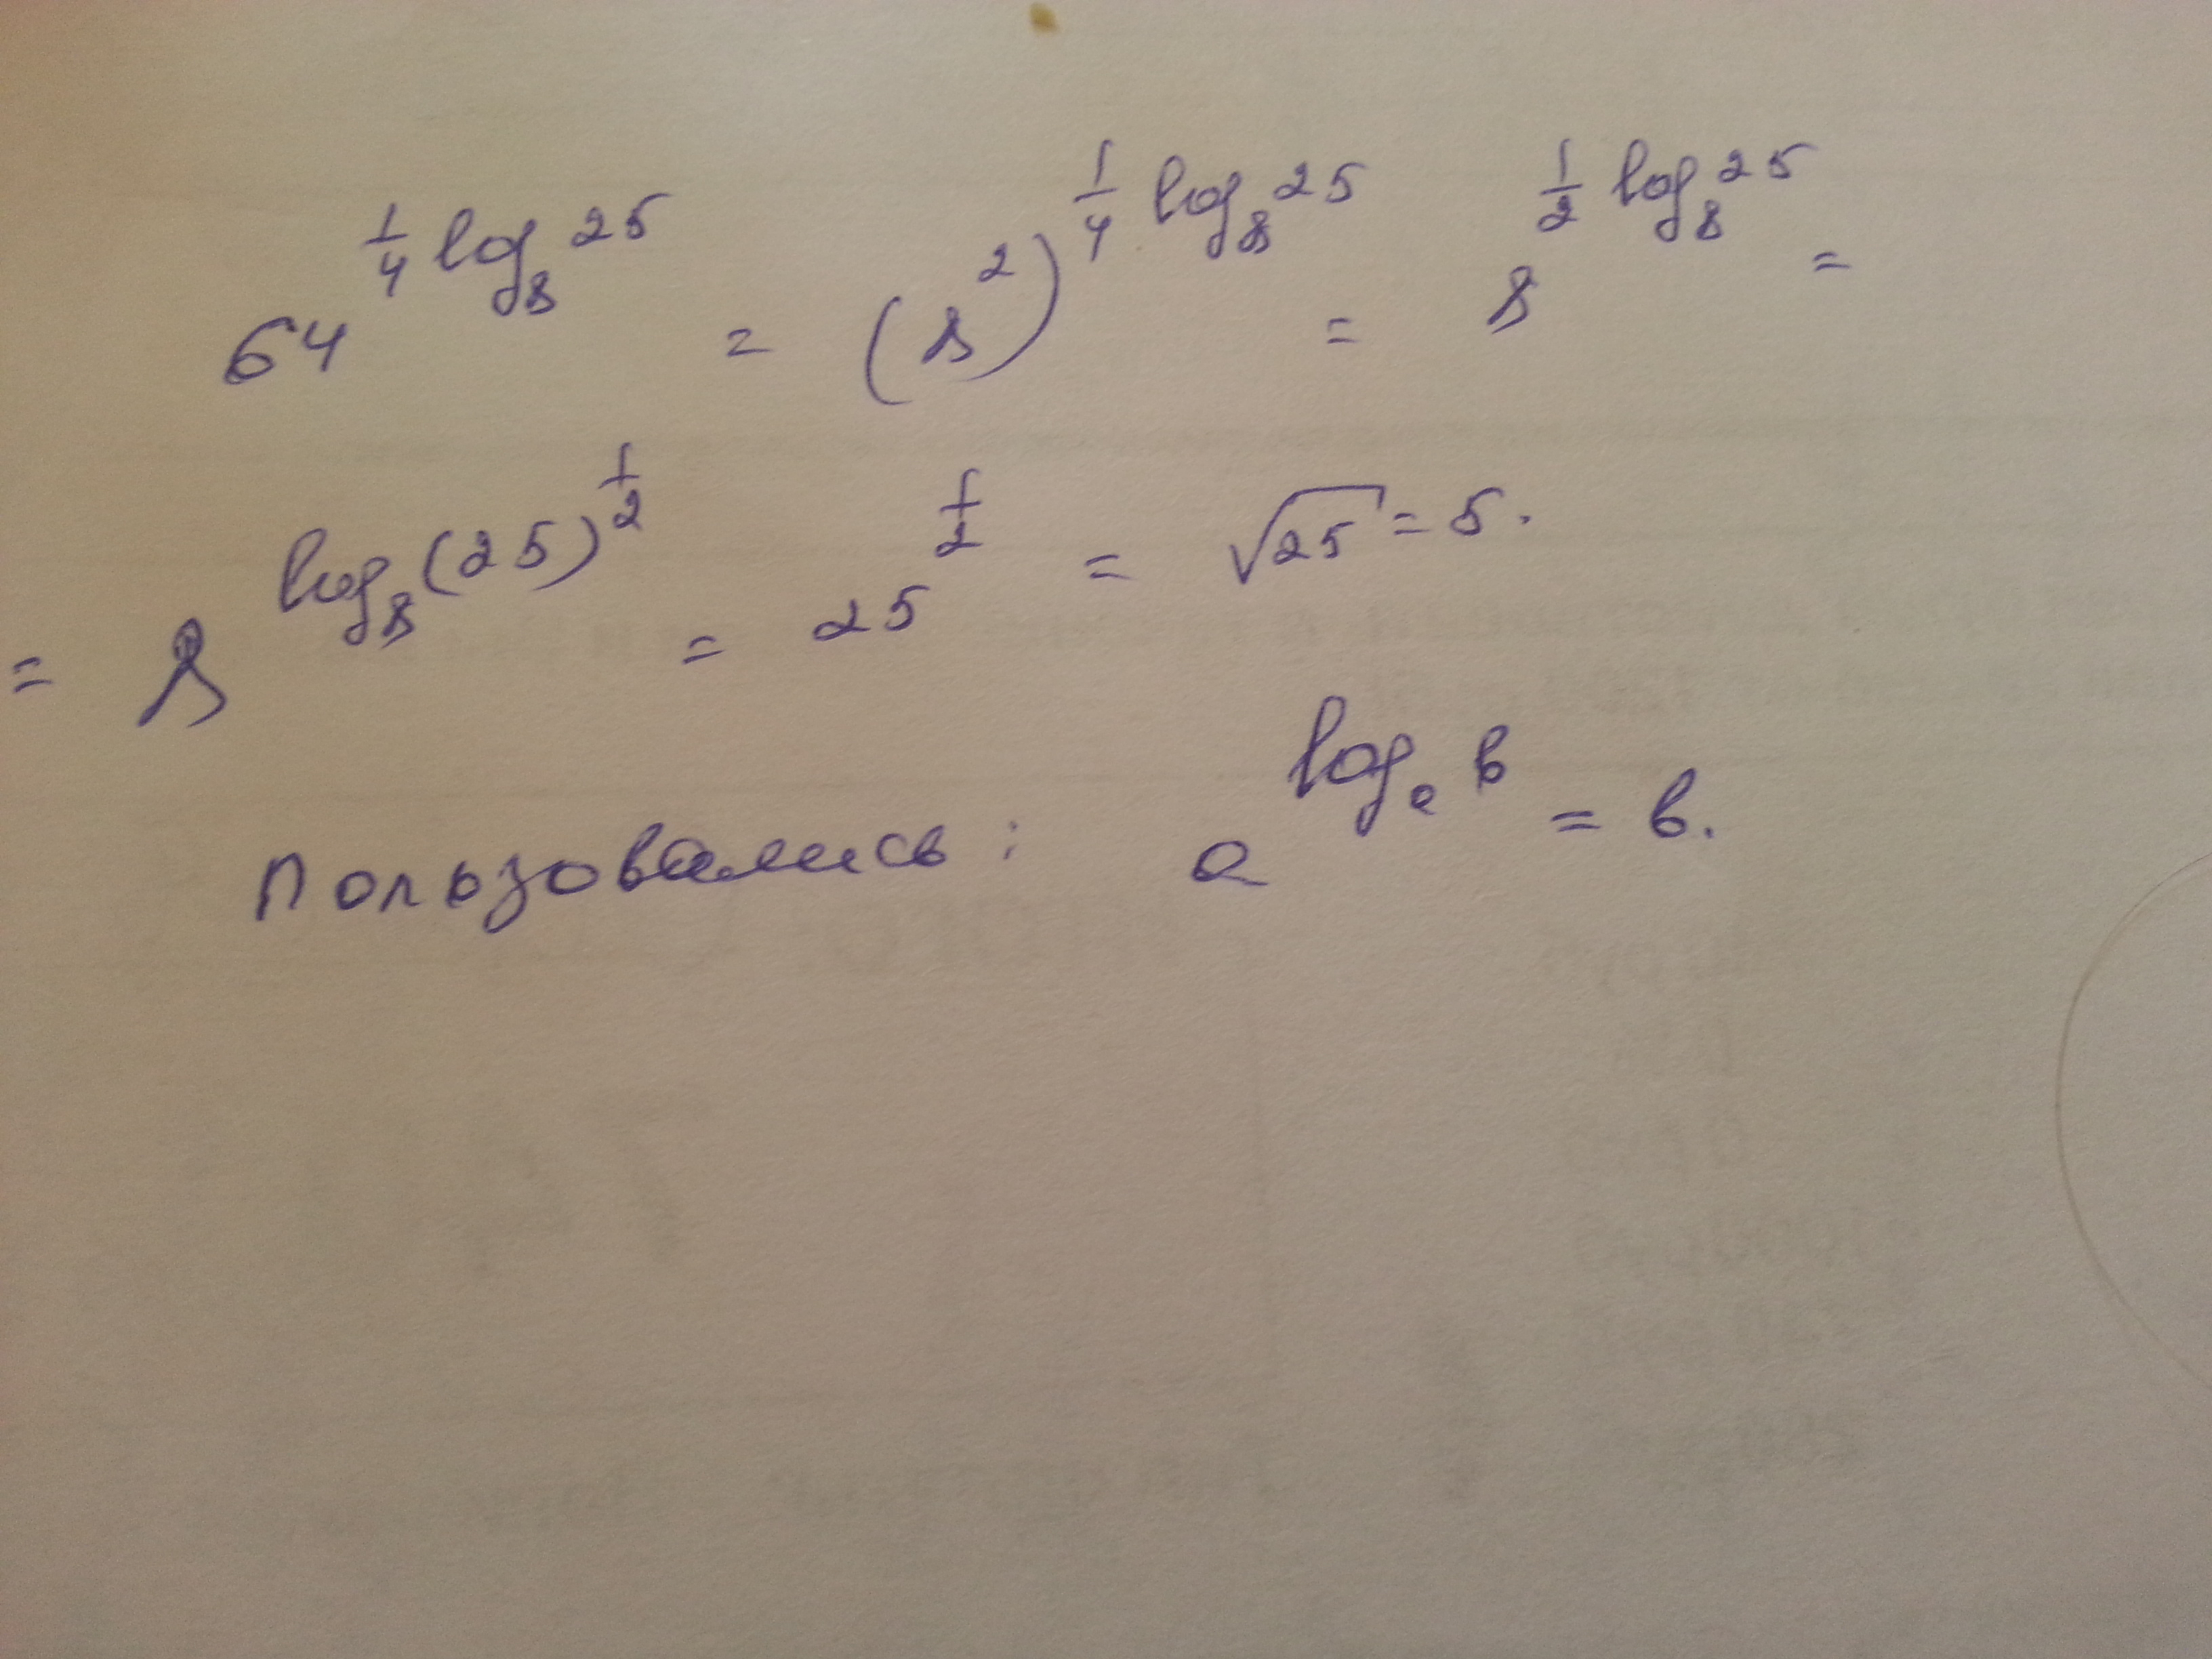 64^{\frac{1}{4} log_8 25} = (8^2)^{\frac{1}{4} log_8 25} = 8^{\frac{1}{2} log_8 25} =
= 8^{log_8 (25)^{\frac{1}{2}}} = 25^{\frac{1}{2}} = √25 = 5.
Пользовались: a^{log_a в} = в.